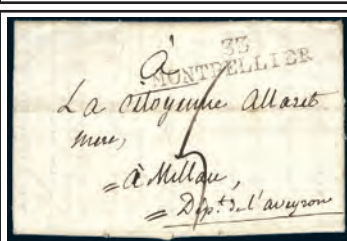 33
MONTPELLIER
À
La Citoyenne Allaret
mere,
= à Millau,
= Dép.t de l'aveyron
5